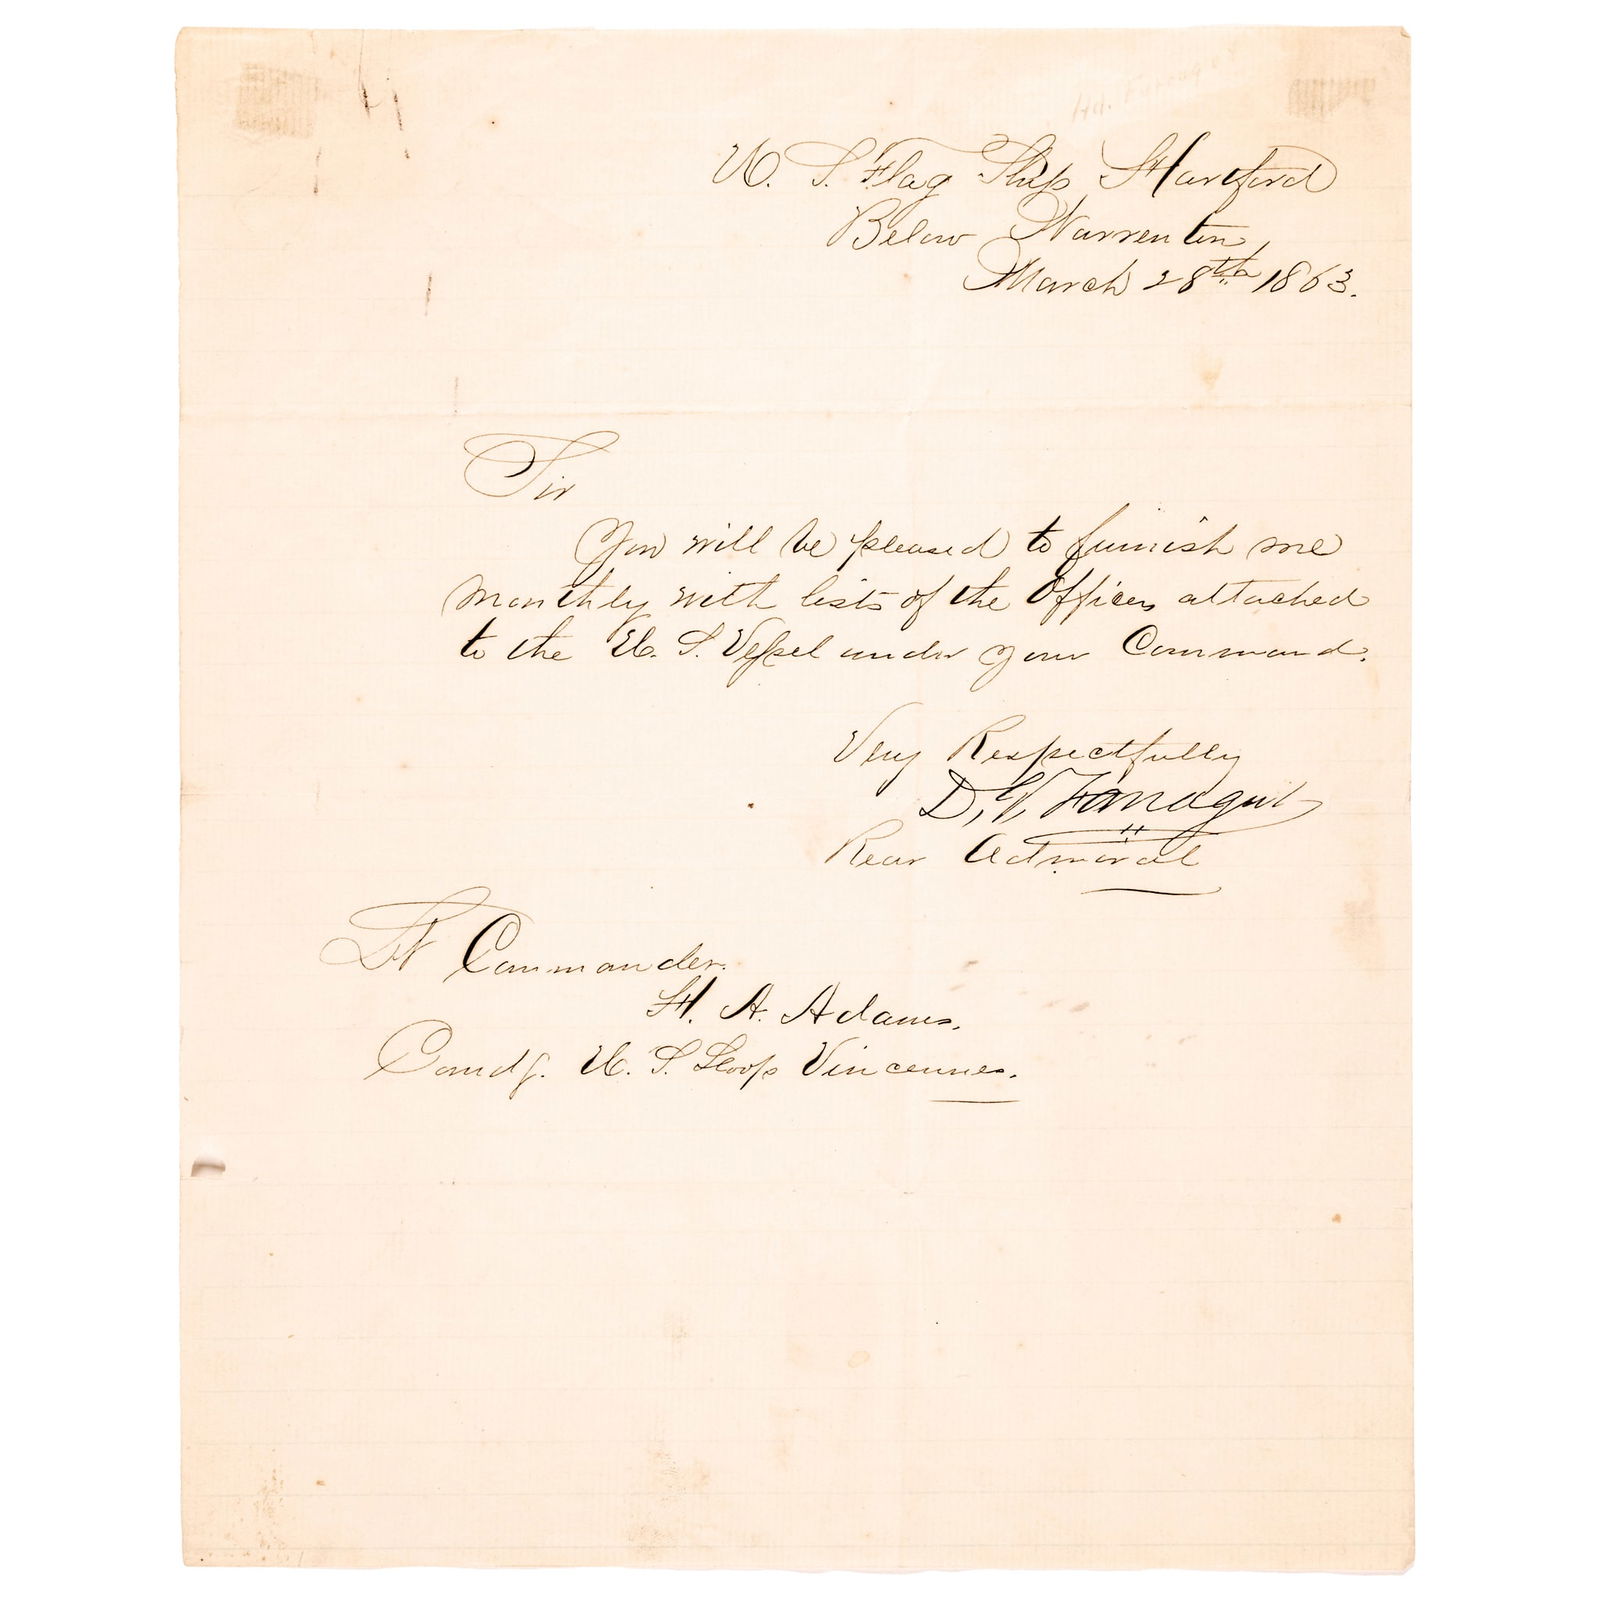 U. S. Flag Ship Hartford
Below Warrenton
March 28th 1863.
Sir
You will be pleased to furnish me
monthly with lists of the Officers attached
to the U. S. Vessel under your Command.
Very Respectfully
D. G. Farragut
Rear Admiral
Lt Commander.
H. A. Adams.
Comdg. U. S. Sloop Vincennes.